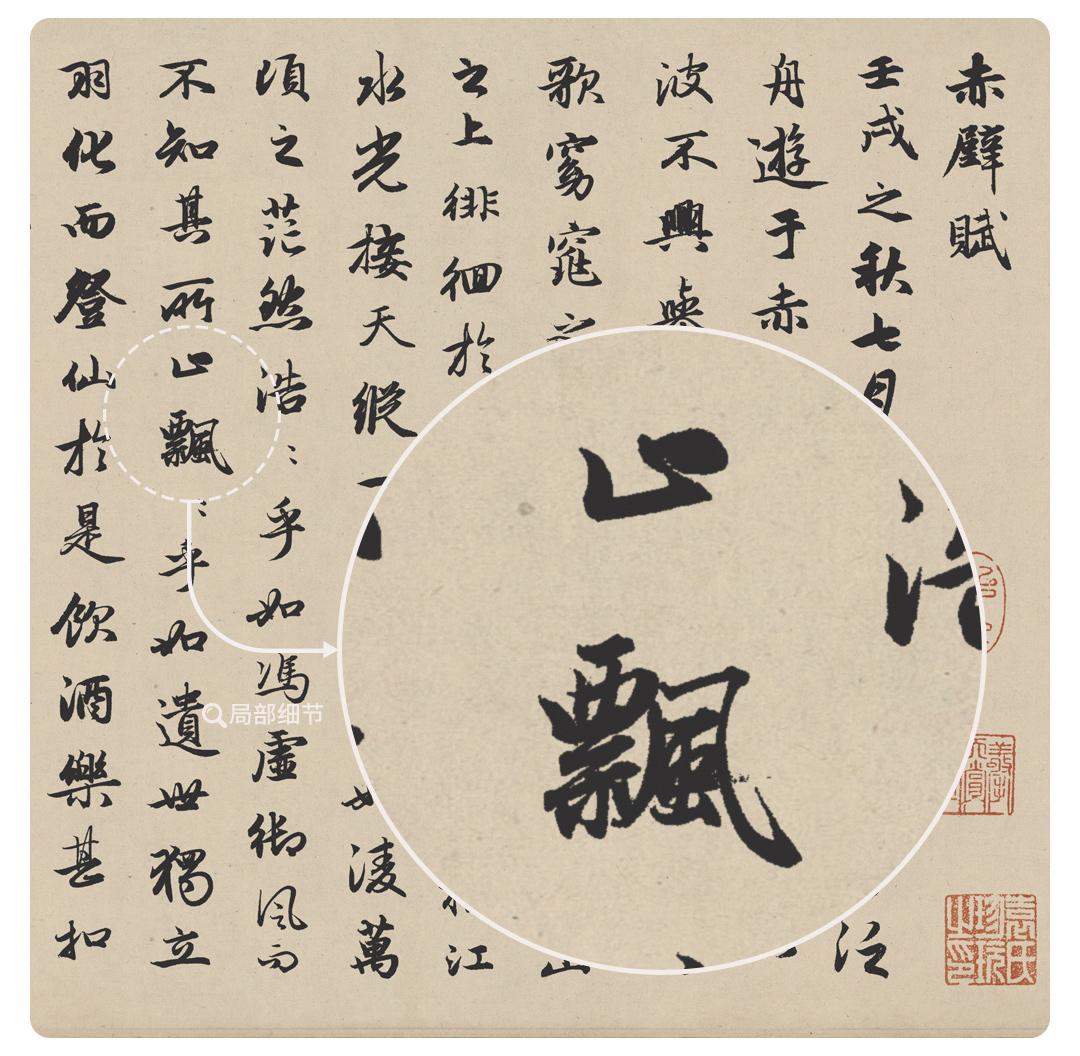 赤壁賦
壬戌之秋七月
泛
舟遊于赤
波不興
歌窈窕之
之上徘徊於
江
水光接天縱
凌萬
頃之茫然浩〻乎如馮虛御風而
不知其所止飄〻乎如遺世獨立
羽化而登仙於是飲酒樂甚扣
止飄
局部细节